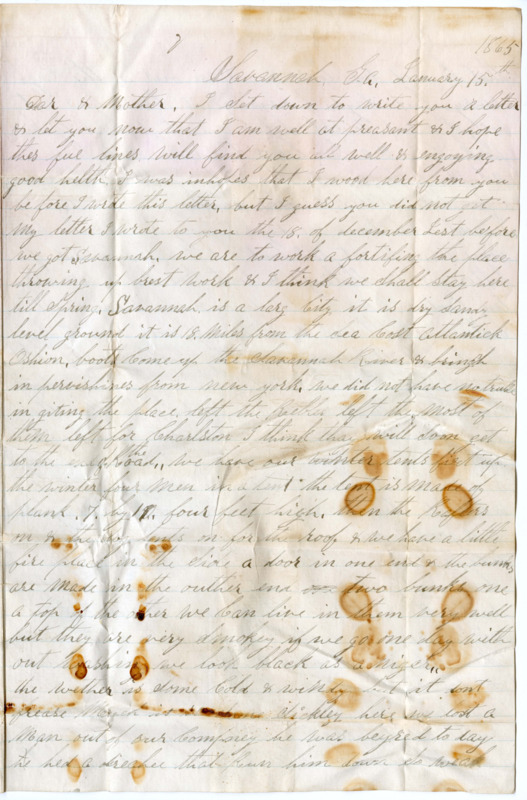 1865
Savannah, Ga, January 15th
& Mother, I Set down to write you a letter
& let you now that I am well at preasant & I hope
thes fue lines will find you all well & engoying
good helth I was inhopes that I wood here from you
before I wrote this letter, but I guess you did not git
My letter I wrote to you the 18. of december Jest before
we got Savannah, we are to work a fortifing the place
throwing up brest work & I think we shall stay here
till Spring, Savannah is a larg City it is dry Sandy
level ground it is 18 Miles from the Sea Cost Atlantick
Oshion, boots Come up the Savannah River & bringh
in pervishines from new york, we did not have no truble
in giting the place, left the most of
them left for Charlston I think thay will soon get
to the end of the road,, we have our winter tents put up
the winter four men in a tent the tent is made of
plank by 11, four feet high, then the
on & the tents on for the roof & we have a little
fire place in the Side a door in one end & the bunks
are made in the outher end two bunks one
a top of the other we Can live in them very well
but they are very Smokey if we go one day with
out washing we look black as a niger,,
the wether is Some Cold & windy but it dont
frease Much Sickley here we lost a
Man out of our Compney he was to day
he hed a that him down So weak